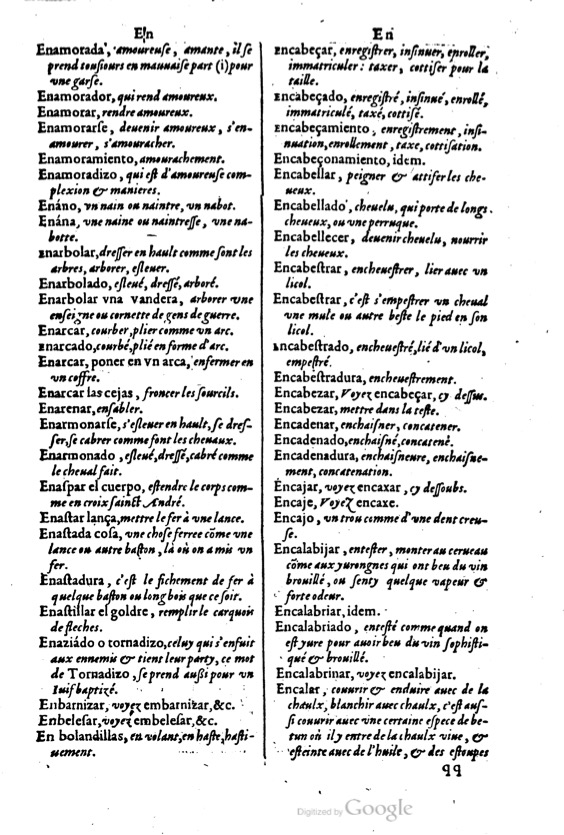 En
Enamorada, amoureuse, amante, il se
prend tousiours en mauuaise part (i) pour
vne garse.
Enamorador, qui rend amoureux.
Enamorar, rendre amoureux.
Enamorarſe, deuenir amoureux, s'en-
amourer, s'amouracher.
Enamoramiento, amourachement.
Enamoradizo, qui eſt d'amoureuſe com-
plexion & manieres.
Enáno, vn nain ou naintre, vn nabot.
Enána, vne naine ou naintreſſe, vne na-
botte.
Enarbolar, dreſſer en hault comme ſont les
arbres, arborer, eſleuer.
Enarbolado, eſleué, dreſſé, arboré.
Enarbolar vna vandera, arborer vne
enſeigne ou cornette de gens de guerre.
Enarcar, courber, plier comme vn arc.
Enarcado, courbé, plié en forme d'arc.
Enarcar, poner en vn arca, enfermer en
vn coffre.
Enarcar las cejas, froncer les ſourcils.
Enarenar, enſabler.
Enarmonarſe, s'eſleuer en hault, ſe dreſ-
ſer, ſe cabrer comme font les cheuaux.
Enarmonado, eſleué, dreſſé, cabré comme
le cheual fait.
Enaſpar el cuerpo, eſtendre le corps com-
me en croix ſainct André.
Enaſtar lança, mettre le fer à vne lance.
Enaſtada coſa, vne choſe ferree cōme vne
lance ou autre baſton, là où on a mis vn
fer.
Enaſtadura, c'eſt le fichement de fer à
quelque baſton ou long bois que ce ſoit.
Enaſtillar el goldre, remplir le carquois
de fleches.
Enaziádo o tornadizo, celuy qui s'enfuit
aux ennemis & tient leur party, ce mot
de Tornadizo, ſe prend auſſi pour vn
Iuif baptizé.
Enbarnizar, voyez embarnizar, &c.
Enbeleſar, voyez embeleſar, &c.
En bolandillas, en volant, en haſte, haſti-
uement.
En
Encabeçar, enregiſtrer, inſinuer, enroller,
immatriculer: taxer, cottiſer pour la
taille.
Encabeçado, enregiſtré, inſinué, enrollé,
immatriculé, taxé, cottiſé.
Encabeçamiento, enregiſtrement, inſi-
nuation, enrollement, taxe, cottiſation.
Encabeçonamiento, idem.
Encabellar, peigner & attifer les che-
ueux.
Encabellado, cheuelu, qui porte de longs
cheueux, ou vne perruque.
Encabellecer, deuenir cheuelu, nourrir
les cheueux.
Encabeſtrar, encheueſtrer, lier auec vn
licol.
Encabeſtrar, c'eſt s'empeſtrer vn cheual
vne mule ou autre beſte le pied en ſon
licol.
Encabeſtrado, encheueſtré, lié d'vn licol,
empeſtré.
Encabeſtradura, encheueſtrement.
Encabezar, Voyez encabeçar, cy deſſus.
Encabezar, mettre dans la teſte.
Encadenar, enchaiſner, concatener.
Encadenado, enchaiſné, concatené.
Encadenadura, enchaiſneure, enchaiſne-
ment, concatenation.
Encajar, voyez encaxar, cy deſſoubs.
Encaje, Voyez encaxe.
Encajo, vn trou comme d'vne dent creu-
ſe.
Encalabijar, enteſter, monter au cerueau
cōme aux yurongnes qui ont beu du vin
brouillé, ou ſenty quelque vapeur &
forte odeur.
Encalabriar, idem.
Encalabriado, enteſté comme quand on
eſt yure pour auoir beu du vin ſophiſti-
qué & brouillé.
Encalabrinar, voyez encalabijar.
Encalar, couurir & enduire auec de la
chaulx, blanchir auec chaulx, c'eſt auſ-
ſi couurir auec vne certaine eſpece de be-
tun où il y entre de la chaulx viue, &
eſteinte auec de l'huile, & des eſtoupes
qq
Digitized by Google